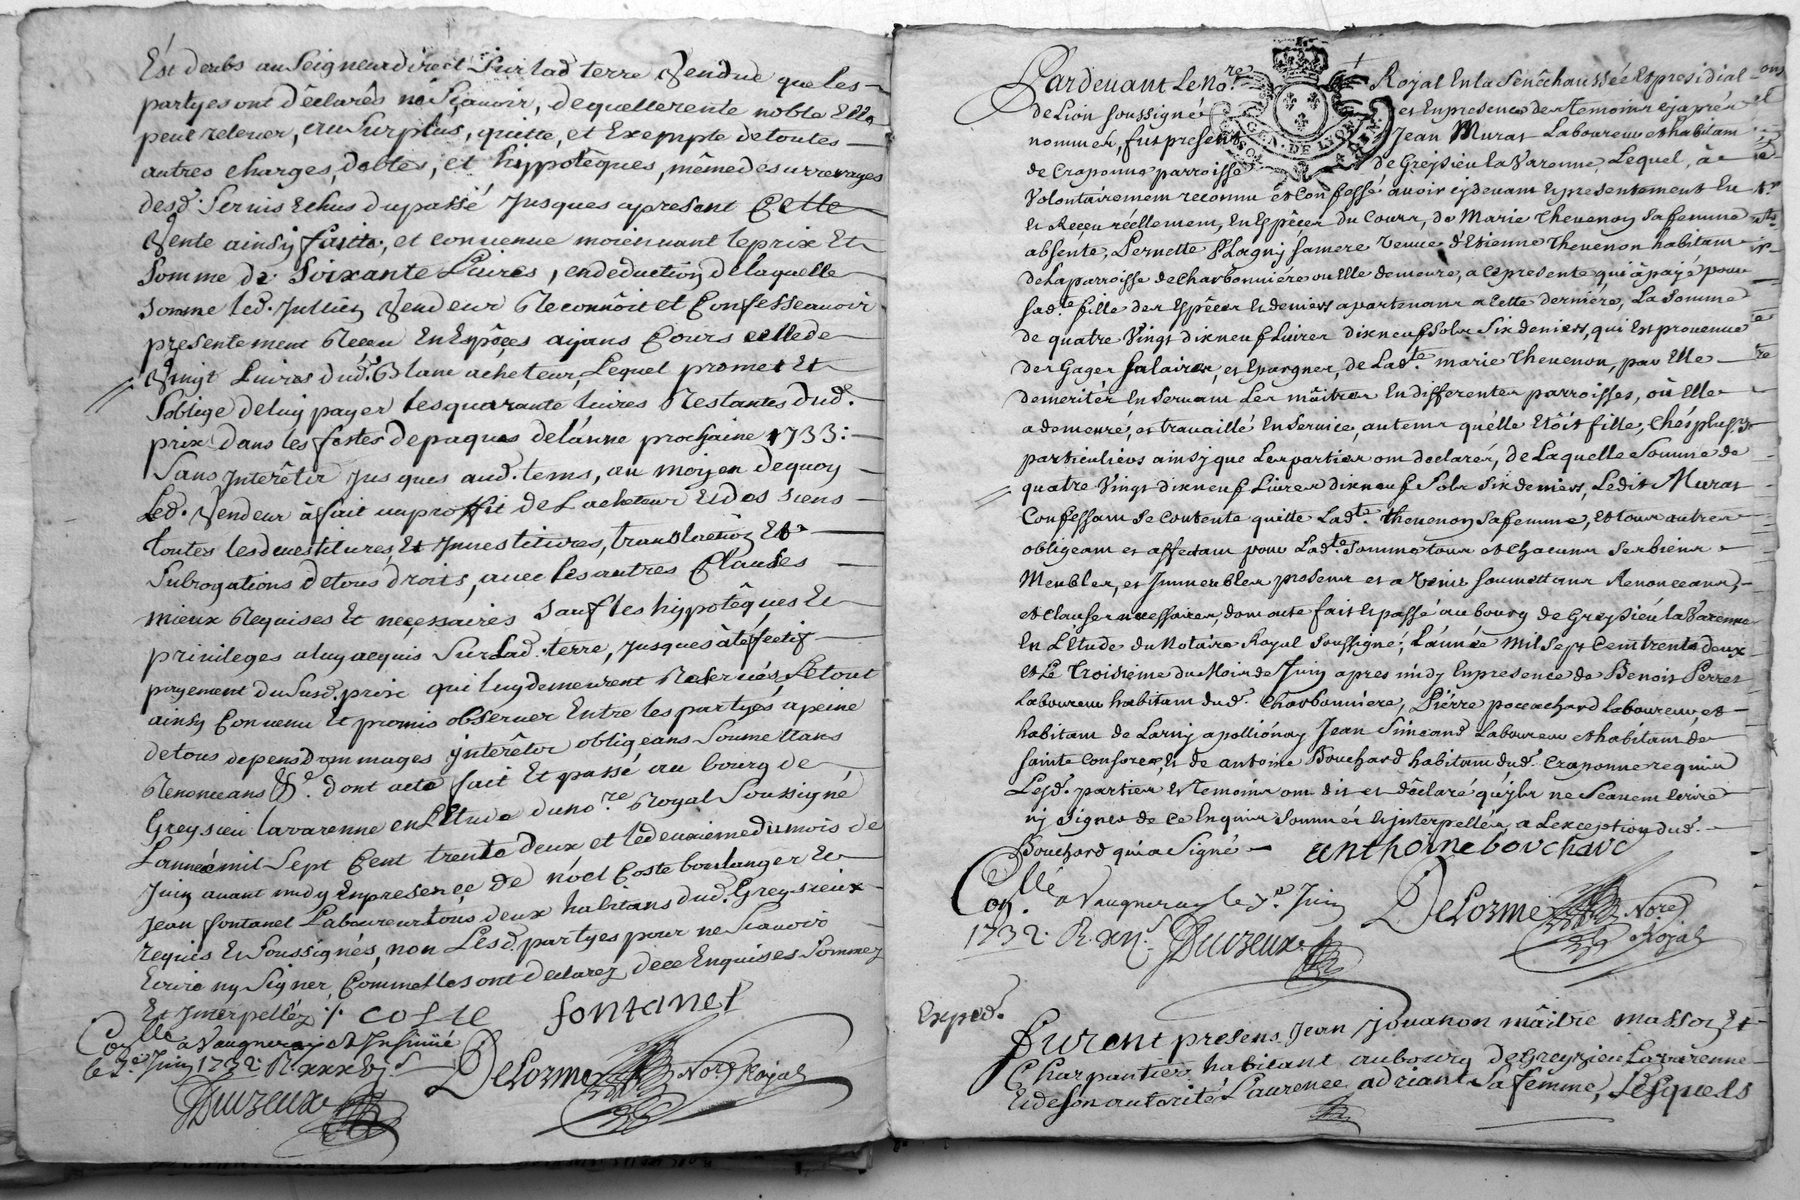 Est deubs au Seigneur direct Sur lad terre Vendue que les
partyes ont dêclarés ne Sçauoir, de quelle rente noble Elle
peut releuer, au Surplus, quitte, et Exempte de toutes
autres charges, debtes, et hyppotêques, même des arrerages
desd. Seruis Echus du passé Jusques apresent Cette
Vente ainsy faitte, et conuenue moiennant le prix Et
Somme de Soixante Liures, en deduction de laquelle
Somme led. Jullien Vendeur Reconnôit et Confesse auoir
presentement Receu En Espêces aÿans Cours celle de
Vingt Liures dud. Blanc acheteur, Lequel promet Et
S'oblige de luy payer les quarante liures Restantes dud.
prix dans les festes de paques de l'anne prochaine 1733:
Sans Interêtz Jusques aud. tems, au moyen de quoy
Led. Vendeur à fait au proffit de L'acheteur Et des siens
toutes les deuestitures, Et Inuestitures, translation Et
Subrogations de tous droits, auec les autres Clauses
mieux Requises Et neçessaires Sauf les hyppotêques Et
priuileges a luy acquis Sur Lad. terre, Jusques à l'éffectif
payement du Susd. prix qui luy demeurent Reserués, Le tout
ainsy Conuenu Et promis obseruer Entre les partyes à peine
de tous depens Dommages interêtz obligeans Soumettans
Renonceans &c. dont acte fait Et passé au bourg de
Greysieu lavarenne en L'Etude du no.re Royal Soussigné
L'année mil Sept Cent trente deux et le deuxieme du mois de
Juin auant midy En presençe de nöel Coste boulanger Et
Jean fontanel Laboureur tous deux habitans dud. Greysieux
requis Et Soussignés, non Lesd. partyes pour ne Scauoir
Ecrire ny Signer Comme Elles ont declarez de ce Enquises Sommez
Et Interpellez ./. coste fontanel
Con.lle à Vaugneray et Insinüé
le 7.e Juin 1732. R. xxx
Duizeux Delorme Nore Royal
Pardeuant Le No.re Royal En la Senêchaussée Et presidial
de Lion soussigné et En presence des Temoins cy aprés
nommés, fut présent Jean Murat Laboureur et habitant
de Craponne parroisse de Greysieu la Varenne, Lequel, à
Volontairement reconnu et Confessé auoir cy deuant Et presentement Eu
et Receu réellement, En Espêces du Cours, de Marie Theuenon Sa femme
absente, Pernette St Lagny Sa mere Veuue d'Etienne Theuenon habitante
de La parroisse de Charbonniére ou Elle demeure, a Ce presente, qui à payé pour
Sad.te fille des Espêces Et deniers apartenans a Cette derniére, La Somme
de quatre Vingt dix neuf Liures dix neuf Sols Six deniers, qui Est prouenue
des Gages Salaires, et Epargnes, de Lad.te marie Theuenon, par Elle
demerités En Seruant Les mâitres En differentes parroisses, où Elle
a demeuré, et trauaillé En Seruice, au tems qu'elle Etôit fille, Chés plus.rs
particuliers ainsy que Les parties ont declarés, de Laquelle Somme de
quatre Vingt dix neuf Liures dix neuf Sols Six deniers, Ledit Murat
Confessant Se Contente quitte Lad.te Theuenon Sa femme, Et tous autres
obligeant et affectant pour Lad.te Somme tous et Chacuns Ses biens
Meubles, et Immeubles presens et a Venir Soumettans Renonceans,
et Clauses necessaires, dont acte fait Et passé au bourg de Greysieu la Varenne
En L'Etude du Notaire Royal Soussigné, L'année Mil Sept Cent trente deux
et Le Troisieme du Mois de Juin apres midy En presence de Benoit Perret
Laboureur habitant dud. Charbonniére, Piérre poccachard Laboureur, et
habitant de Larny a pollionay Jean Simeand Laboureur et habitant de
Sainte Consorce, Et de antoine Bouchard habitant dud. Craponne requis
Lesd. parties Et Temoins ont dit et dêclaré qu'jls ne Scauent Ecrire
ny Signer de ce Enquis Sommés et jnterpellés, a L'exception dud.
Bouchard qui a Signé anthoine bouchard
Con.llé à Vaugneray le 7.e Juin
1732. R. Delorme Nore
Duizeux Royal
Exped.
Furent presens Jean Jouanon mâitre masson Et
Charpentier habitant au bourg de Greyzieu Lavarenne
Et de son autorité Laurence adriant Sa femme, Lesquels